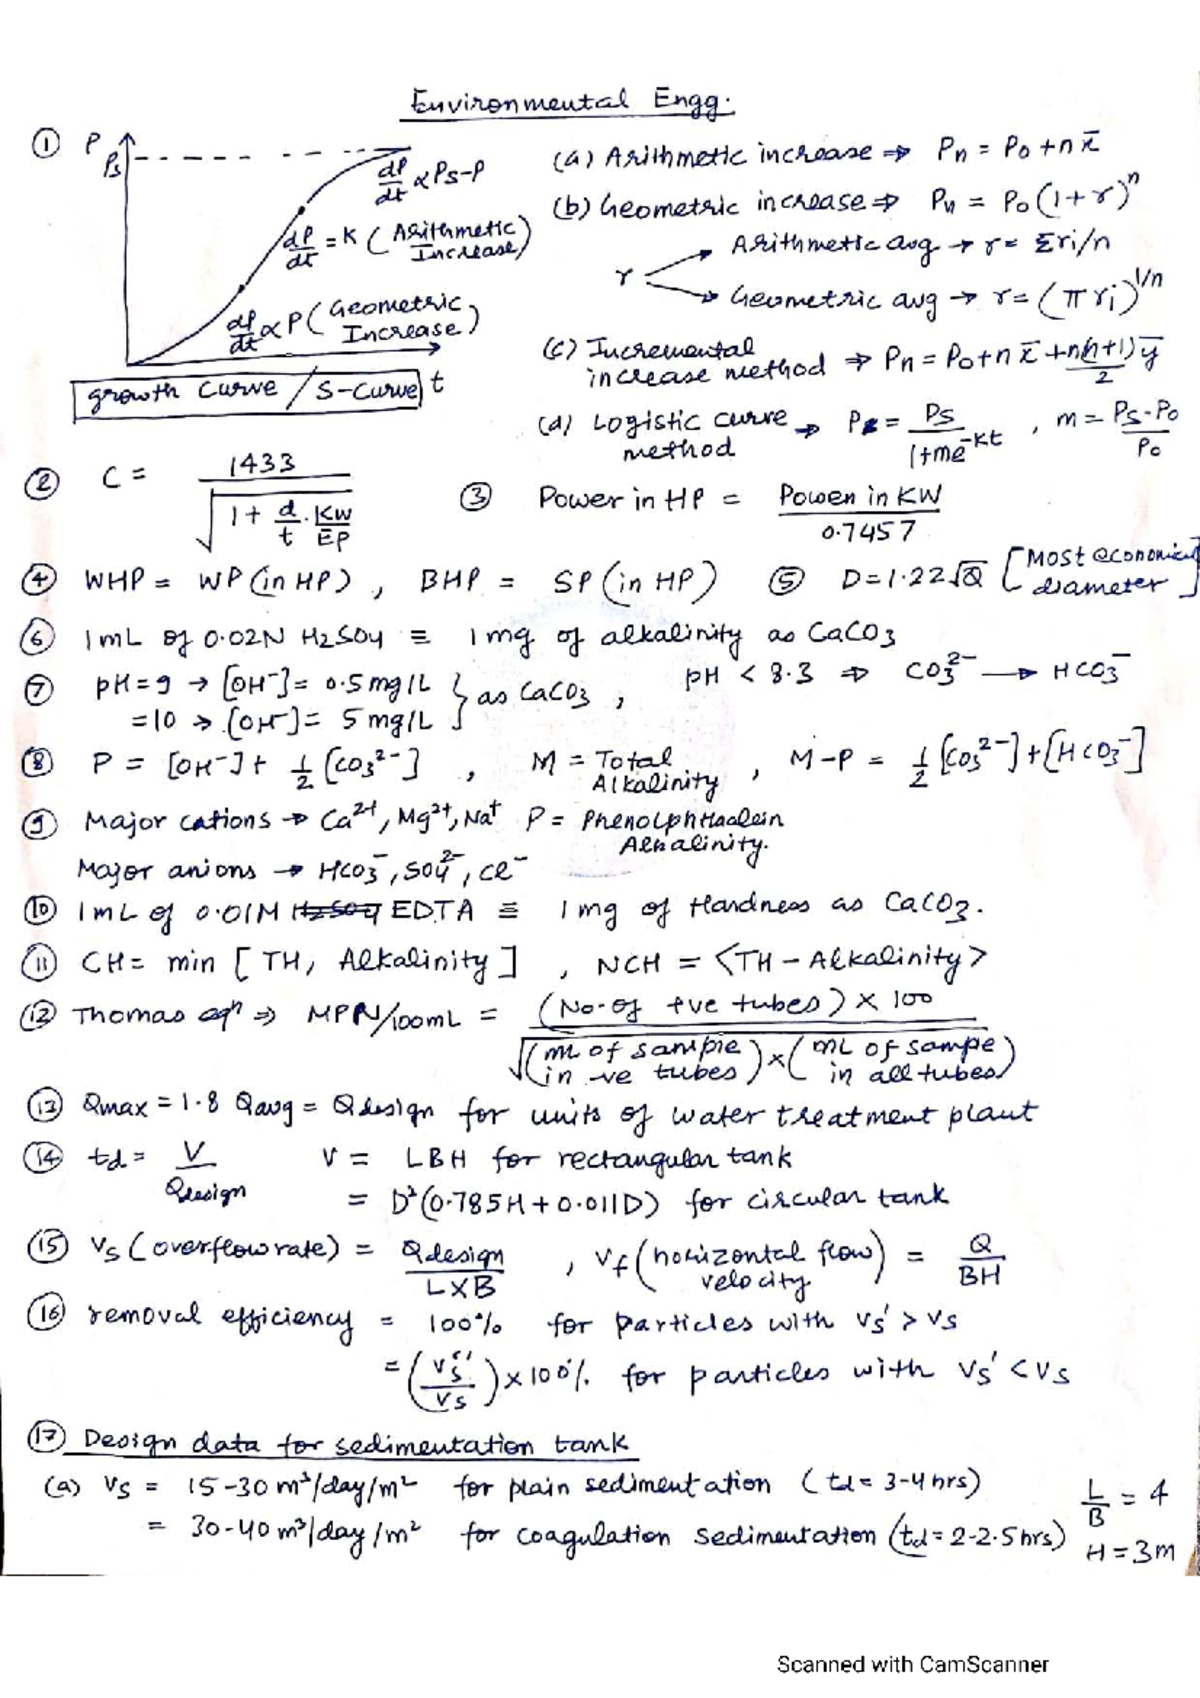 Environmental Engg.
① P
Ps
dP/dt ∝ Ps-P
dP/dt = K (Arithmetic Increase)
dP/dt ∝ P (Geometric Increase)
growth curve / S-curve t
(a) Arithmetic increase ⇒ Pn = P0 + n x̄
(b) Geometric increase ⇒ Pn = P0 (1+r)^n
r → Arithmetic avg → r = Σri/n
→ Geometric avg → r = (π ri)^1/n
(c) Incremental increase method ⇒ Pn = P0 + n x̄ + n(n+1)/2 ȳ
(d) Logistic curve method → P = Ps/(1+me^-Kt) , m = Ps-P0/P0
② C = 1433/√(1 + d/t · Kw/Ep)
③ Power in HP = Power in KW/0.7457
④ WHP = WP (in HP) , BHP = SP (in HP)
⑤ D = 1.22√Q [Most economical diameter]
⑥ 1mL of 0.02N H2SO4 ≡ 1mg of alkalinity as CaCO3
⑦ pH = 9 → [OH⁻] = 0.5 mg/L } as CaCO3 , pH < 8.3 ⇒ CO3²⁻ → HCO3⁻
= 10 → [OH⁻] = 5 mg/L
⑧ P = [OH⁻] + 1/2 [CO3²⁻] , M = Total Alkalinity , M-P = 1/2 [CO3²⁻] + [HCO3⁻]
⑨ Major cations → Ca²⁺, Mg²⁺, Na⁺ P = Phenolphthaelein Alkalinity.
Major anions → HCO3⁻, SO4²⁻, Cl⁻
⑩ 1mL of 0.01M H2SO4 EDTA ≡ 1mg of Hardness as CaCO3.
⑪ CH = min [TH, Alkalinity] , NCH = <TH - Alkalinity>
⑫ Thomas eqn ⇒ MPN/100mL = (No. of +ve tubes) × 100
√(mL of sample in -ve tubes) × (mL of sampe in all tubes)
⑬ Qmax = 1.8 Qavg = Qdesign for units of water treatment plant
⑭ td = V/Qdesign V = LBH for rectangular tank
= D²(0.785H + 0.011D) for circular tank
⑮ Vs (overflow rate) = Qdesign/L×B , Vf (horizontal flow velocity) = Q/BH
⑯ removal efficiency = 100% for particles with Vs' > Vs
= (Vs'/Vs) × 100% for particles with Vs' < Vs
⑰ Design data for sedimentation tank
(a) Vs = 15-30 m³/day/m² for plain sedimentation (td = 3-4 hrs)
= 30-40 m³/day/m² for coagulation sedimentation (td = 2-2.5 hrs)
L/B = 4
H = 3m
Scanned with CamScanner